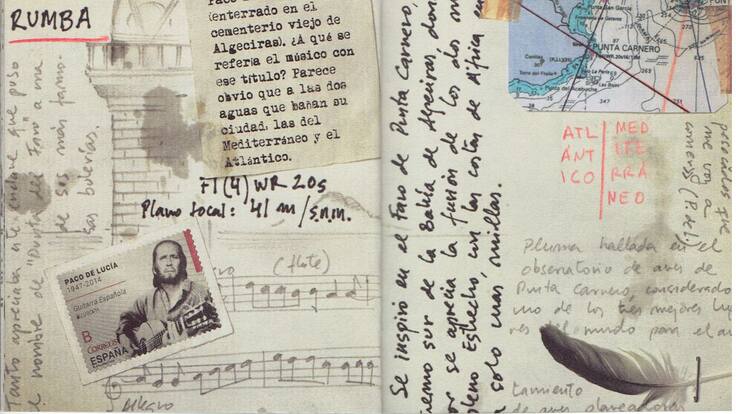 RUMBA
(enterrado en el
cementerio viejo de
Algeciras). ¿A qué se
refería el músico con
ese título? Parece
obvio que a las dos
aguas que bañan su
ciudad, las del
Mediterráneo y el
Atlántico.
Fl(4) WR 20s
Plano focal: 41 m/s.n.m.
Tanto apreciaba este enclave que puso
el nombre de "Punta del Faro" a una
de sus más famo-
sas bulerías.
PACO DE LUCÍA
1947-2014
Guitarra Española
B
CORREOS
ESPAÑA
(flute)
Allegro
Se inspiró en el Faro de Punta Carnero,
sur de la Bahía de Algeciras, don
se aprecia la fusión de los dos
pleno Estrecho, con las costas de África en
a solo unas millas.
PUNTA CARNERO
ATL
ÁNT
ICO
MED
ITE
RRÁ
NEO
pescados que
me voy a
comer (P. de L)
Pluma hallada en el
observatorio de aves de
Punta Carnero, considerado
uno de los tres mejores lu
res del mundo para el a
tamiento
de aves planeadoras